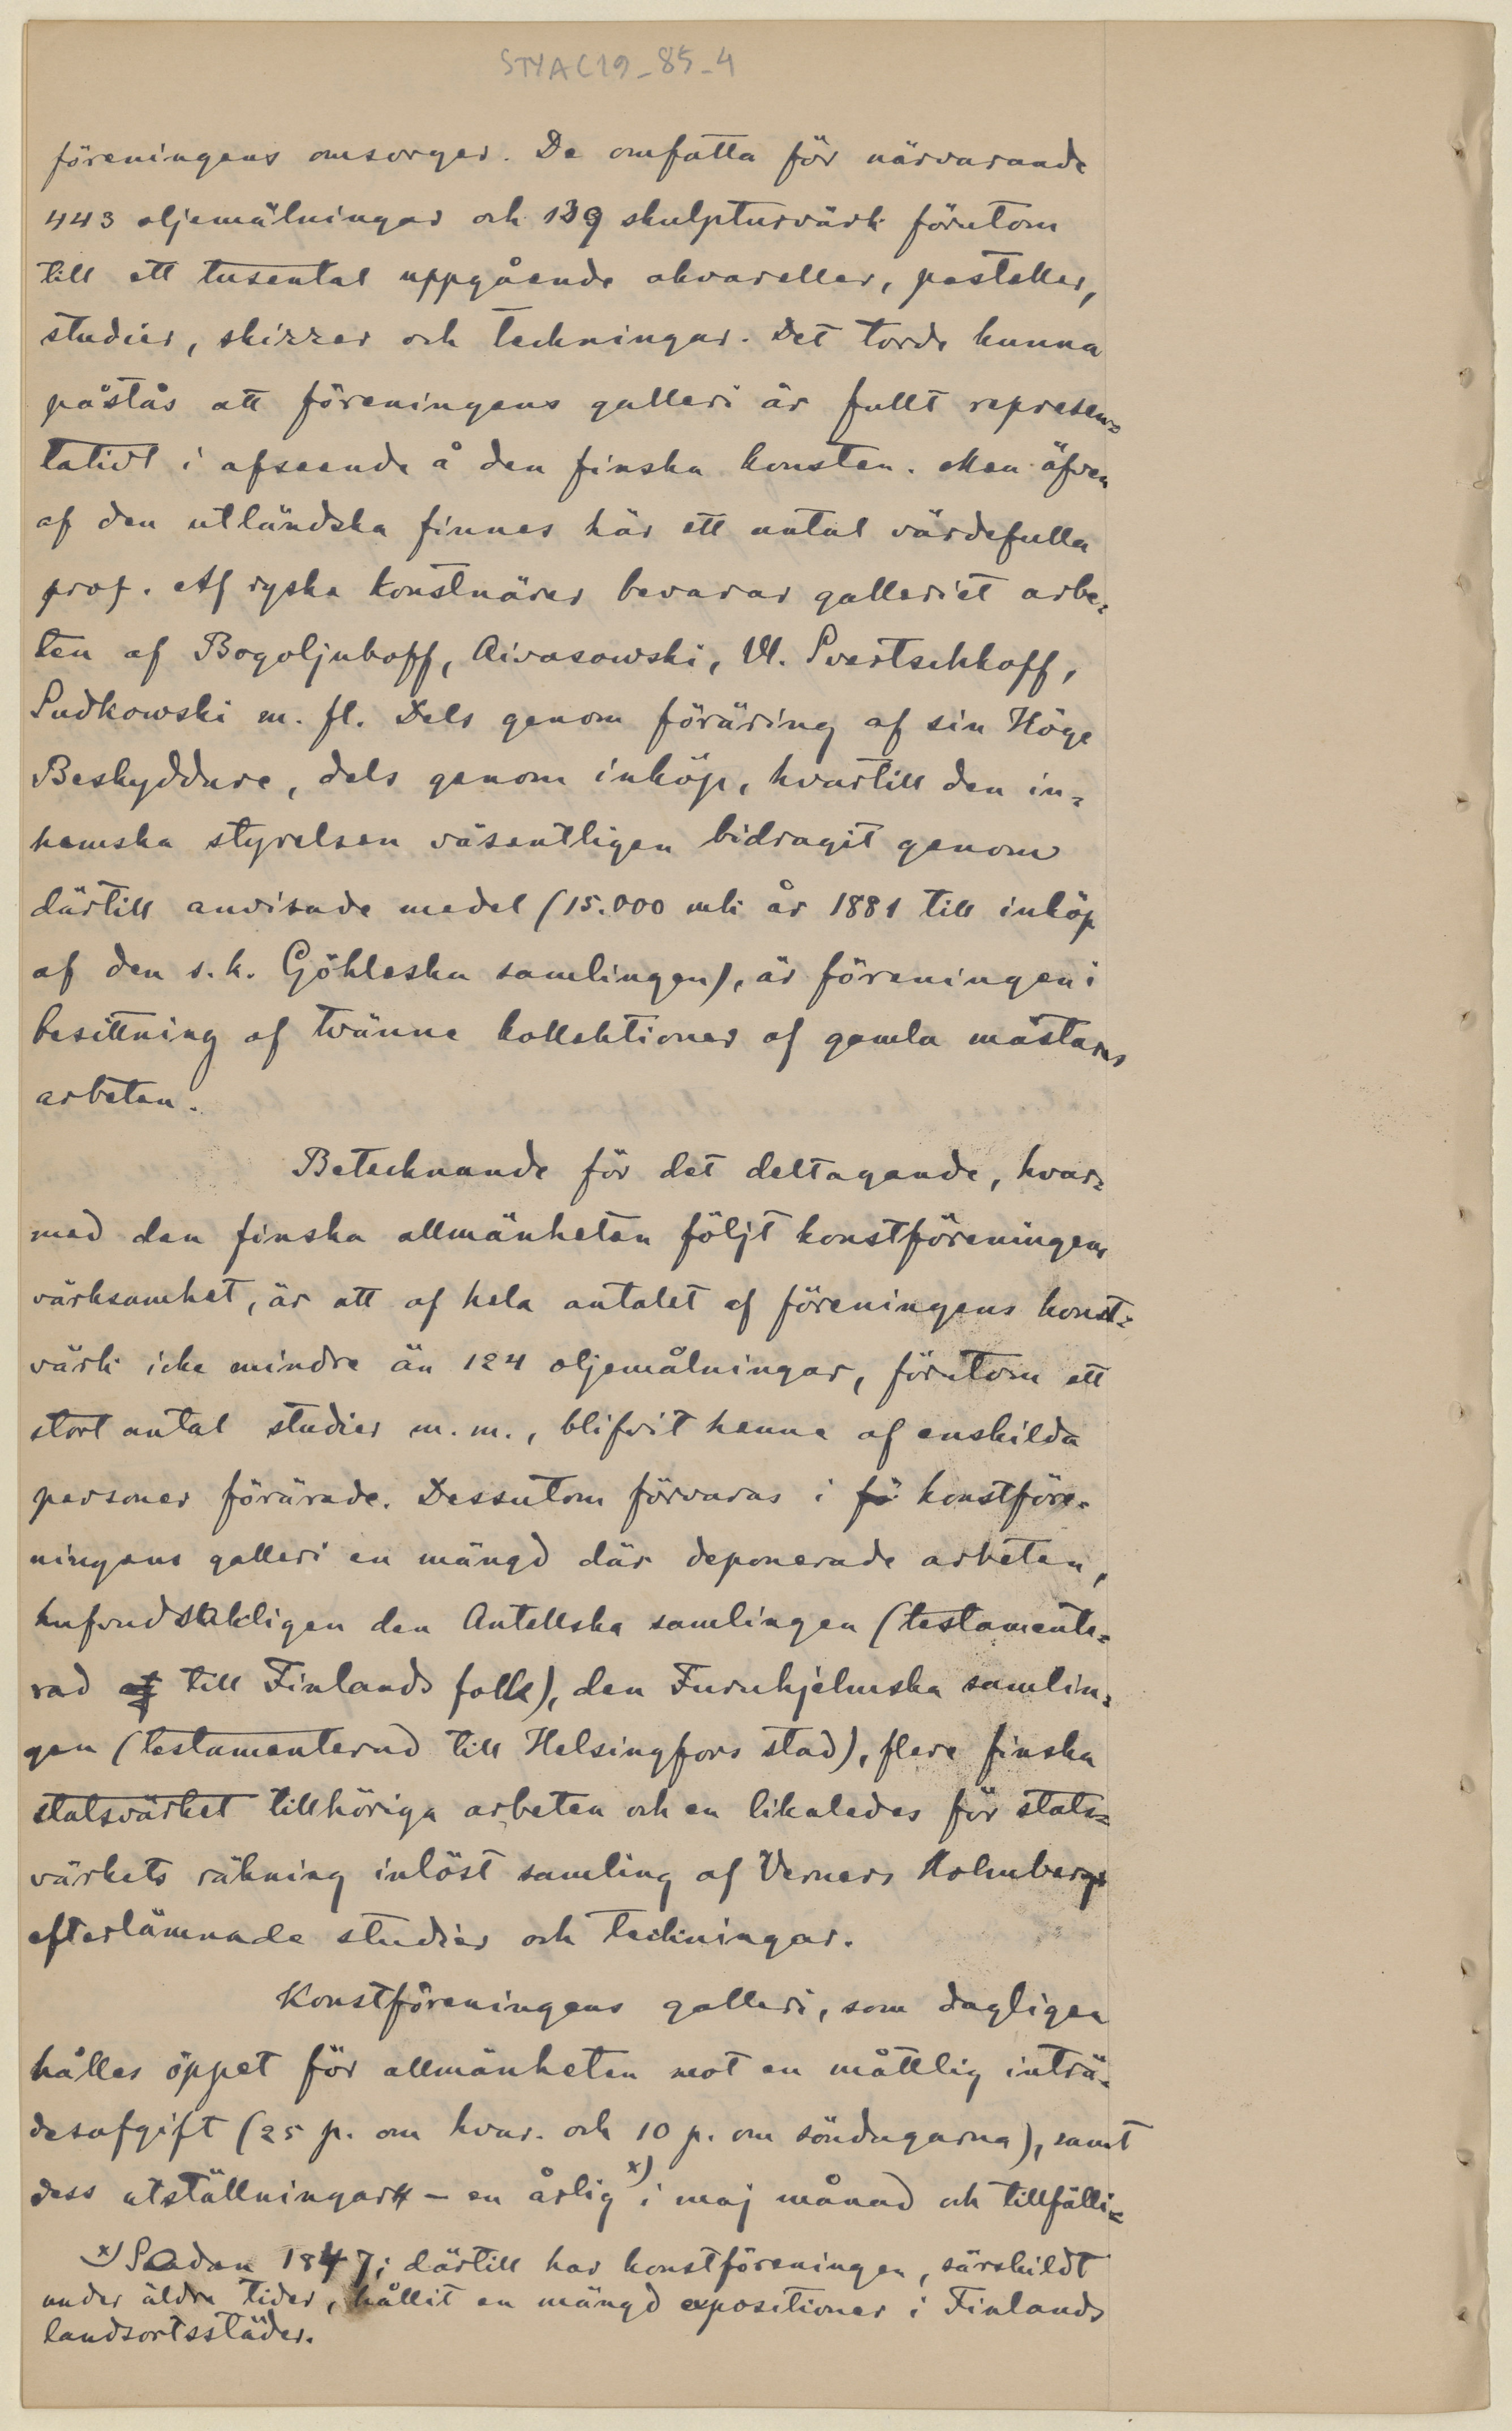 STYAC19_85_4
föreningens omsorger. De omfatta för närvarande
443 oljemålningar och 139 skulpturvärk förutom
till ett tusental uppgående akvareller, pasteller,
studier, skizzer och teckningar. Det torde kunna
påstås att föreningens galleri är fullt represen=
tativt i afseende å den finska konsten. Men äfven
af den utländska finnes här ett antal värdefulla
prof. Af ryska konstnärer bevarar galleriet arbe=
ten af Bogoljuboff, Aivasowski, Vl. Svertschkoff,
Sudkowski m. fl. Dels genom föräring af sin Höge
Beskyddare, dels genom inköp, hvartill den in=
hemska styrelsen väsentligen bidragit genom
därtill anvisade medel (15.000 mk år 1881 till inköp
af den s.k. Göhleska samlingen), är föreningen i
besittning af tvänne kollektioner af gamla mästares
arbeten.
Betecknande för det deltagande, hvar=
med den finska allmänheten följt konstföreningens
värksamhet, är att af hela antalet af föreningens konst=
värk icke mindre än 124 oljemålningar, förutom ett
stort antal studier m. m., blifvit henne af enskilda
personer förärade. Dessutom förvaras i fö konstföre=
ningens galleri en mängd där deponerade arbeten,
hufvudsakligen den Antellska samlingen (testamente=
rad af till Finlands folk), den Furuhjelmska samlin=
gen (testamenterad till Helsingfors stad), flere finska
statsvärket tillhöriga arbeten och en likaledes för stats=
värkets räkning inlöst samling af Verners Holmbergs
efterlämnade studier och teckningar.
Konstföreningens galleri, som dagligen
hålles öppet för allmänheten mot en måttlig inträ=
desafgift (25 p. om hvar. och 10 p. om söndagarna), samt
dess utställningar – en årlig x) i maj månad och tillfälli=
x) Sedan 1847; därtill har konstföreningen, särskildt
under äldre tider, hållit en mängd expositioner i Finlands
landsortsstäder.